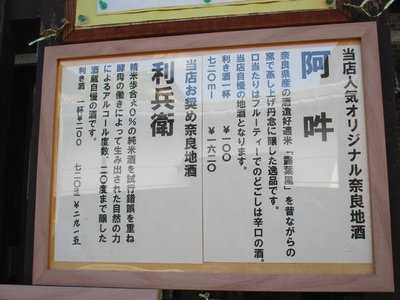 当店人気オリジナル奈良地酒
阿吽
奈良県産の酒造好適米「露葉風」を昔ながらの
窯で蒸し上げ丹念に醸した逸品です。
口当たりはフルーティーでのどごしは辛口の酒。
当店自慢の地酒となります。
利き酒一杯 ￥１００
七二〇ｍｌ ￥一六二〇
当店お奨め奈良地酒
利兵衛
精米歩合七〇％の純米酒を試行錯誤を重ね
酵母の働きによって生み出された自然の力
によるアルコール度数、二〇度まで醸した
酒蔵自慢の酒です。
利き酒 一杯￥２００ 七二〇ミリ ￥二九一五